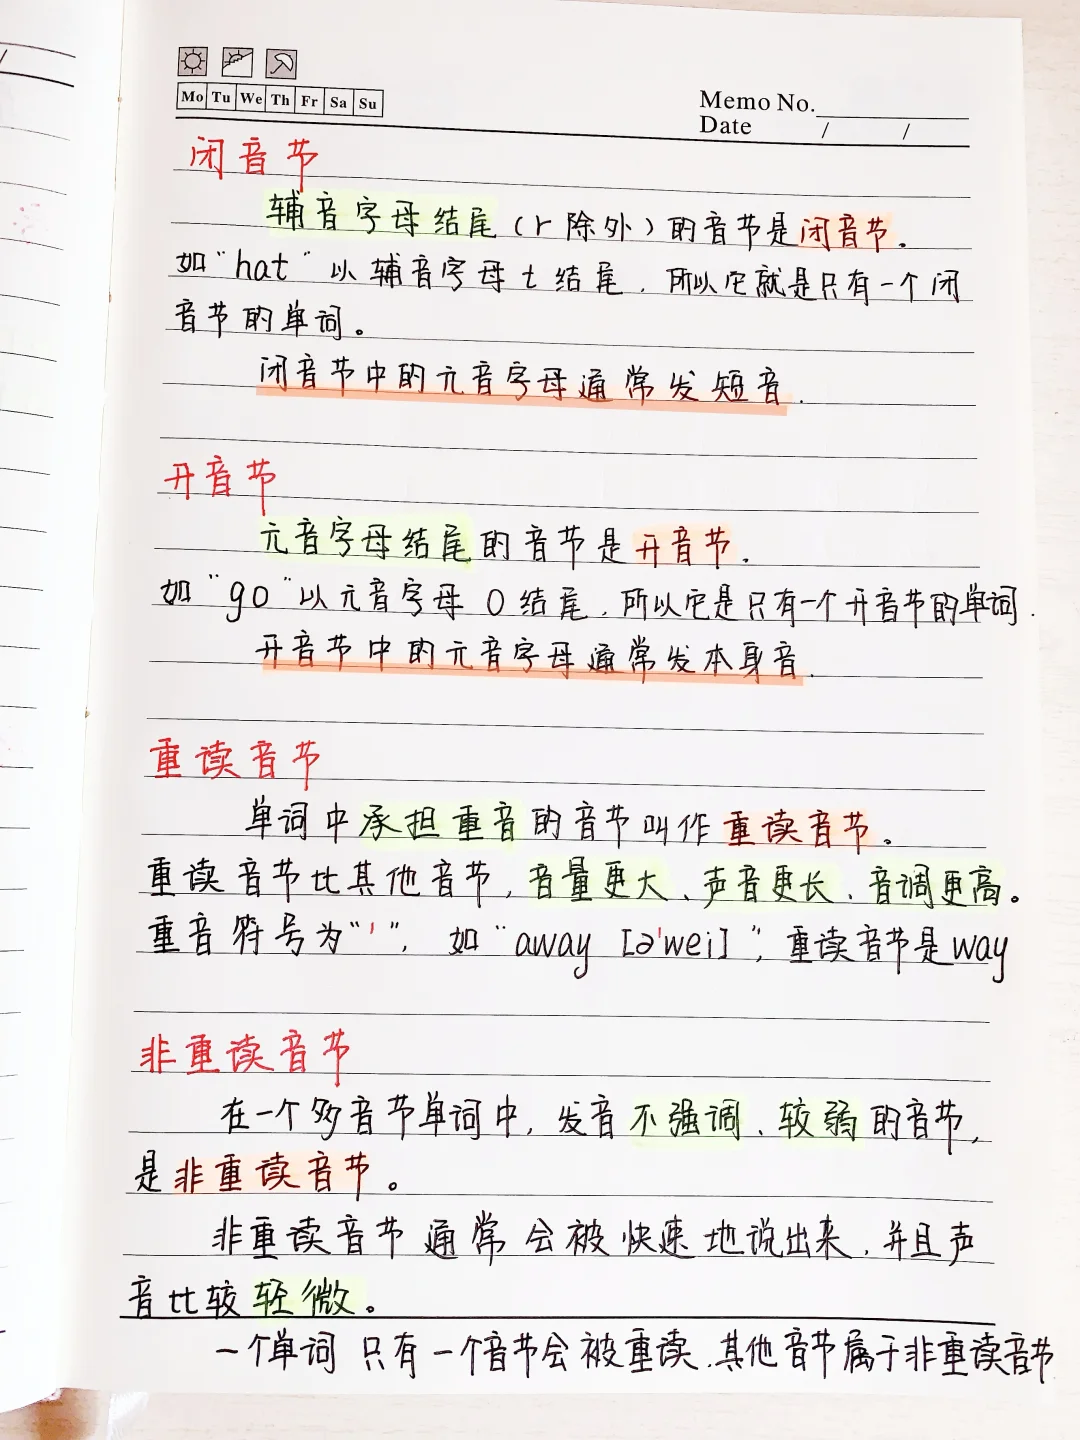 Mo Tu We Th Fr Sa Su
Memo No.
Date / /
闭音节
辅音字母结尾（r 除外）的音节是闭音节.
如“hat”以辅音字母 t 结尾．所以它就是只有一个闭
音节的单词。
闭音节中的元音字母通常发短音.
开音节
元音字母结尾的音节是开音节.
如“go”以元音字母 O 结尾．所以它是只有一个开音节的单词.
开音节中的元音字母通常发本身音.
重读音节
单词中承担重音的音节叫作重读音节。
重读音节比其他音节，音量更大、声音更长、音调更高。
重音符号为“ˈ”，如“away [əˈwei]”，重读音节是way
非重读音节
在一个多音节单词中，发音不强调、较弱的音节，
是非重读音节。
非重读音节通常会被快速地说出来．并且声
音比较轻微。
一个单词只有一个音节会被重读．其他音节属于非重读音节